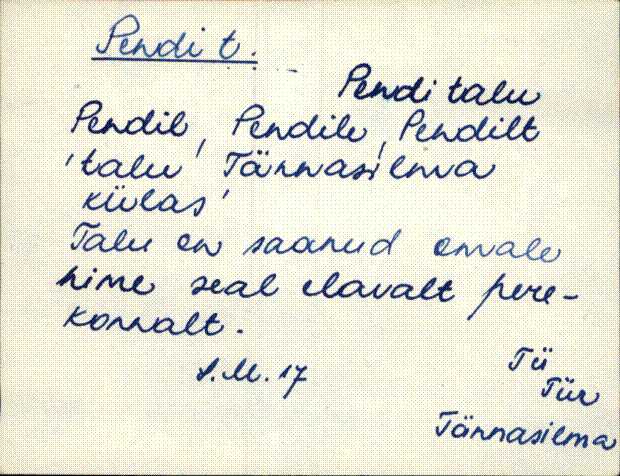 Pendi t.
Pendi talu
Pendil, Pendile, Pendilt
'talu Tännasilma
külas'
Talu on saanud omale
nime seal elavalt pere-
konnalt.
S.M. 17
Tü
Tür
Tännasilma